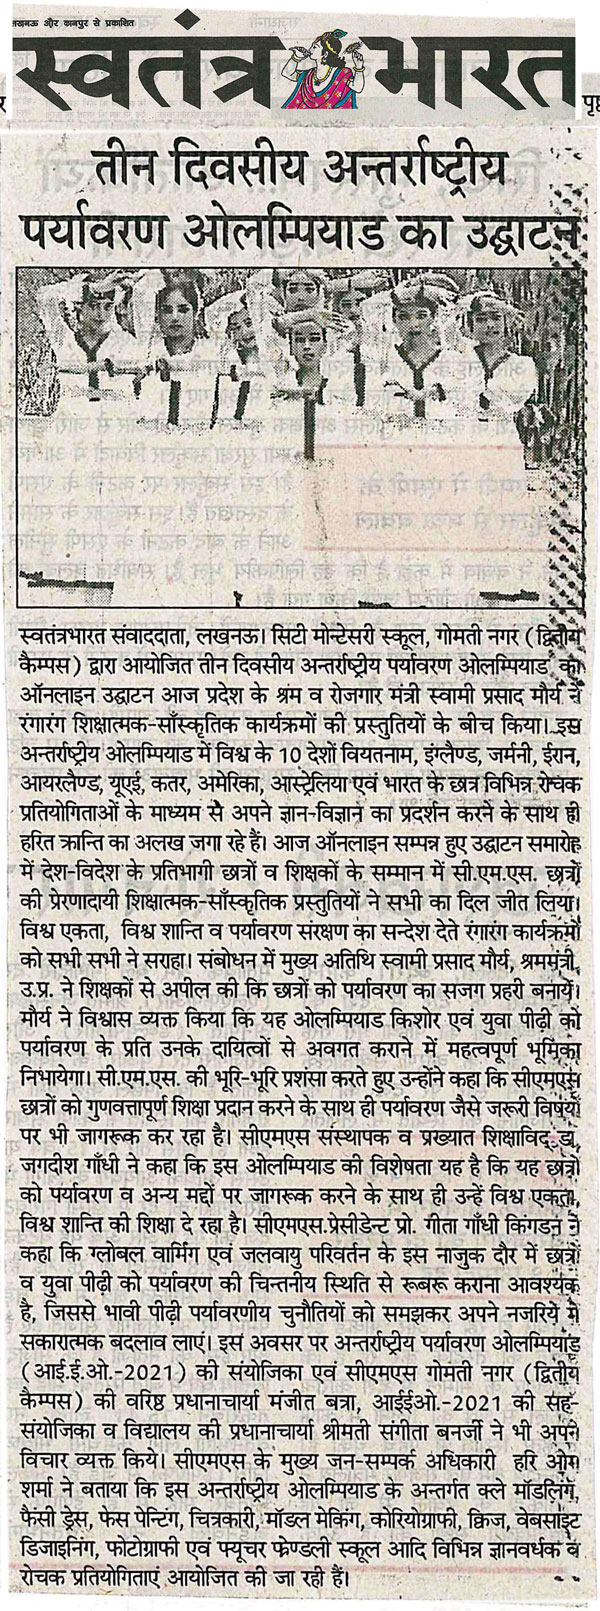 लखनऊ और कानपुर से प्रकाशित
स्वतंत्र भारत
पृष्ठ
तीन दिवसीय अन्तर्राष्ट्रीय
पर्यावरण ओलम्पियाड का उद्घाटन
स्वतंत्रभारत संवाददाता, लखनऊ। सिटी मोन्टेसरी स्कूल, गोमती नगर (द्वितीय
कैम्पस) द्वारा आयोजित तीन दिवसीय अन्तर्राष्ट्रीय पर्यावरण ओलम्पियाड का
ऑनलाइन उद्घाटन आज प्रदेश के श्रम व रोजगार मंत्री स्वामी प्रसाद मौर्य ने
रंगारंग शिक्षात्मक-साँस्कृतिक कार्यक्रमों की प्रस्तुतियों के बीच किया। इस
अन्तर्राष्ट्रीय ओलम्पियाड में विश्व के 10 देशों वियतनाम, इंग्लैण्ड, जर्मनी, ईरान,
आयरलैण्ड, यूएई, कतर, अमेरिका, आस्ट्रेलिया एवं भारत के छात्र विभिन्न रोचक
प्रतियोगिताओं के माध्यम से अपने ज्ञान-विज्ञान का प्रदर्शन करने के साथ ही
हरित क्रान्ति का अलख जगा रहे हैं। आज ऑनलाइन सम्पन्न हुए उद्घाटन समारोह
में देश-विदेश के प्रतिभागी छात्रों व शिक्षकों के सम्मान में सी.एम.एस. छात्रों
की प्रेरणादायी शिक्षात्मक-साँस्कृतिक प्रस्तुतियों ने सभी का दिल जीत लिया।
विश्व एकता, विश्व शान्ति व पर्यावरण संरक्षण का सन्देश देते रंगारंग कार्यक्रमों
को सभी सभी ने सराहा। संबोधन में मुख्य अतिथि स्वामी प्रसाद मौर्य, श्रममंत्री,
उ.प्र. ने शिक्षकों से अपील की कि छात्रों को पर्यावरण का सजग प्रहरी बनायें।
मौर्य ने विश्वास व्यक्त किया कि यह ओलम्पियाड किशोर एवं युवा पीढ़ी को
पर्यावरण के प्रति उनके दायित्वों से अवगत कराने में महत्वपूर्ण भूमिका
निभायेगा। सी.एम.एस. की भूरि-भूरि प्रशंसा करते हुए उन्होंने कहा कि सीएमएस
छात्रों को गुणवत्तापूर्ण शिक्षा प्रदान करने के साथ ही पर्यावरण जैसे जरूरी विषयों
पर भी जागरूक कर रहा है। सीएमएस संस्थापक व प्रख्यात शिक्षाविद् डा.
जगदीश गाँधी ने कहा कि इस ओलम्पियाड की विशेषता यह है कि यह छात्रों
को पर्यावरण व अन्य मद्दों पर जागरूक करने के साथ ही उन्हें विश्व एकता,
विश्व शान्ति की शिक्षा दे रहा है। सीएमएस.प्रेसीडेन्ट प्रो. गीता गाँधी किंगडन ने
कहा कि ग्लोबल वार्मिंग एवं जलवायु परिवर्तन के इस नाजुक दौर में छात्रों
व युवा पीढ़ी को पर्यावरण की चिन्तनीय स्थिति से रूबरू कराना आवश्यक
है, जिससे भावी पीढ़ी पर्यावरणीय चुनौतियों को समझकर अपने नजरिये में
सकारात्मक बदलाव लाएं। इस अवसर पर अन्तर्राष्ट्रीय पर्यावरण ओलम्पियाड
(आई.ई.ओ.-2021) की संयोजिका एवं सीएमएस गोमती नगर (द्वितीय
कैम्पस) की वरिष्ठ प्रधानाचार्या मंजीत बत्रा, आईईओ.-2021 की सह-
संयोजिका व विद्यालय की प्रधानाचार्या श्रीमती संगीता बनर्जी ने भी अपने
विचार व्यक्त किये। सीएमएस के मुख्य जन-सम्पर्क अधिकारी हरि ओम
शर्मा ने बताया कि इस अन्तर्राष्ट्रीय ओलम्पियाड के अन्तर्गत क्ले मॉडलिंग,
फैंसी ड्रेस, फेस पेन्टिंग, चित्रकारी, मॉडल मेकिंग, कोरियोग्राफी, क्विज, वेबसाइट
डिजाइनिंग, फोटोग्राफी एवं फ्यूचर फ्रेण्डली स्कूल आदि विभिन्न ज्ञानवर्धक व
रोचक प्रतियोगिताएं आयोजित की जा रही हैं।